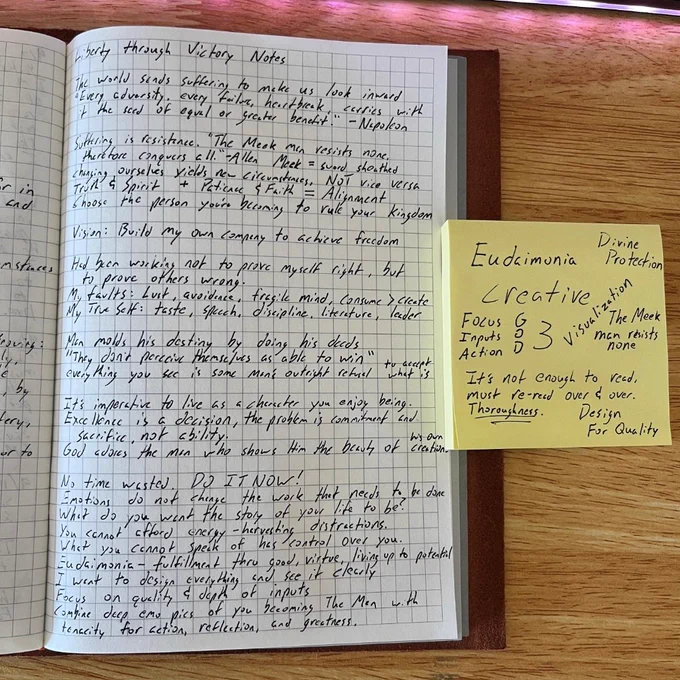 Liberty through Victory Notes
The world sends suffering to make us look inward
"Every adversity, every failure, heartbreak, carries with
it the seed of equal or greater benefit." - Napoleon
Suffering is resistance. "The Meek man resists none,
therefore conquers all." - Allen Meek = sword sheathed
Changing ourselves yields new circumstances, NOT vice versa
Truth & Spirit + Patience & Faith = Alignment
Choose the person you're becoming to rule your kingdom
Vision: Build my own company to achieve freedom
Had been working not to prove myself right, but
to prove others wrong.
My faults: Lust, avoidance, fragile mind, consume > create
My True Self: taste, speech, discipline, literature, leader
Man molds his destiny by doing his deeds
"They don't perceive themselves as able to win"
everything you see is some man's outright refusal to accept what is
It's imperative to live as a character you enjoy being.
Excellence is a decision, the problem is commitment and
sacrifice, not ability.
God adores the man who shows Him the beauty of his own creation.
No time wasted. DO IT NOW!
Emotions do not change the work that needs to be done
What do you want the story of your life to be?
You cannot afford energy-harvesting distractions.
What you cannot speak of has control over you.
Eudaimonia - fulfillment thru good, virtue, living up to potential
I want to design everything and see it clearly
Focus on quality & depth of inputs
Combine deep emo pics of you becoming The Man with
tenacity for action, reflection, and greatness.
or in
and
mstances
roving:
ly,
e
, by
tery,
or to
Eudaimonia
Divine
Protection
Creative
Visualization
Focus G
Inputs O
Action D
3
The Meek
man resists
none
It's not enough to read,
must re-read over & over.
Thoroughness.
Design
For Quality